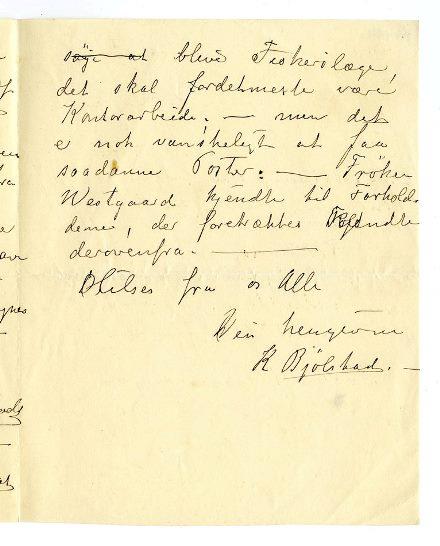 søge at bleve Fiskerilæge,
det skal fordetmeste være
Kontorarbeide. — men det
e nok vanskeligt at faa
saadanne Poster. — Frøken
Westgaard kjendte til Forhold-
dene, der foretrækkes Kjendte
derovenfra. —
Hilsen fra os Alle
Din hengivne
K Bjølstad. —